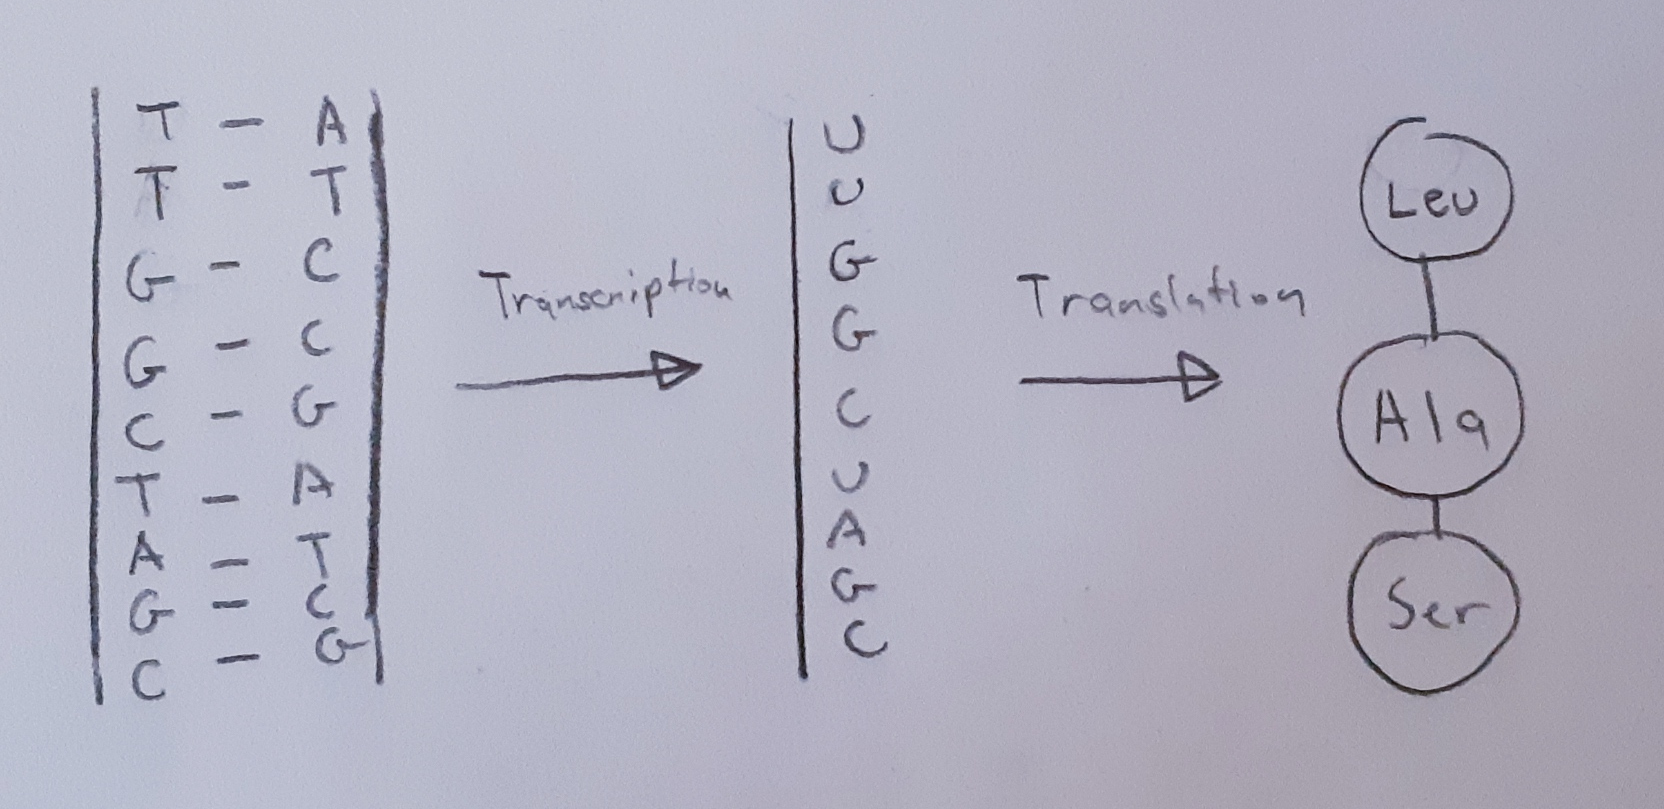 T - A
T - T
G - C
G - C
C - G
T - A
A - T
G - C
C - G
Transcription
U
U
G
G
C
U
A
G
C
Translation
Leu
Ala
Ser